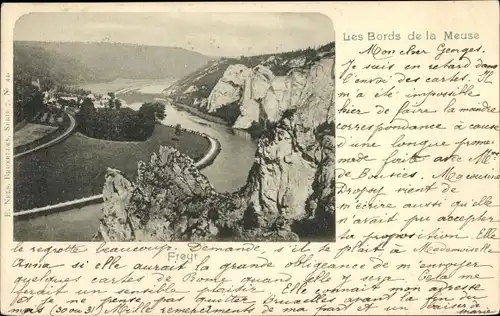 Les Bords de la Meuse
Mon cher Georges.
je suis en retard
dans l'envoi des cartes. Il
m'a été impossible
hier de faire la moindre
correspondance à cause
d'une longue prome
nade faite avec Mr
Ma cousine
vient de
m'écrire. Elle
n'avait pu accepter
je le regrette beaucoup. Demande, s'il te plaît à Mademoiselle
Anna si elle aurait la grande obligeance de m'envoyer
quelques cartes de Rome quand elle y sera. Cela me
ferait un sensible plaisir. Elle connait mon adresse
et je ne pense pas quitter Bruxelles avant la fin du
mois (30 ou 31) Mille remerciments de ma part et un baiser de
Marie
Freyr
E. Nels, Bruxelles, Série 7, No 41